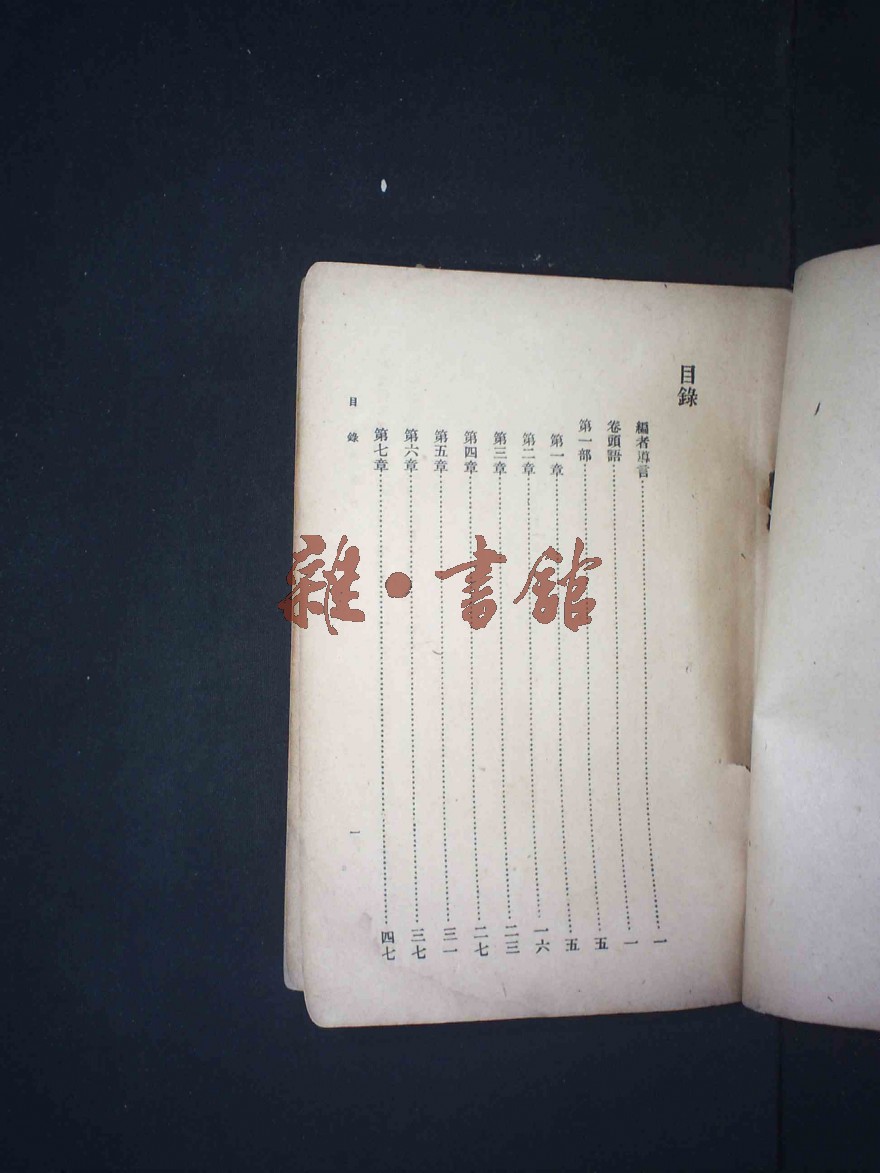 目錄
編者導言……一
卷頭語……一
第一部……五
第一章……五
第二章……一六
第三章……二三
第四章……二七
第五章……三一
第六章……三七
第七章……四七
目 錄 一
雜·書館